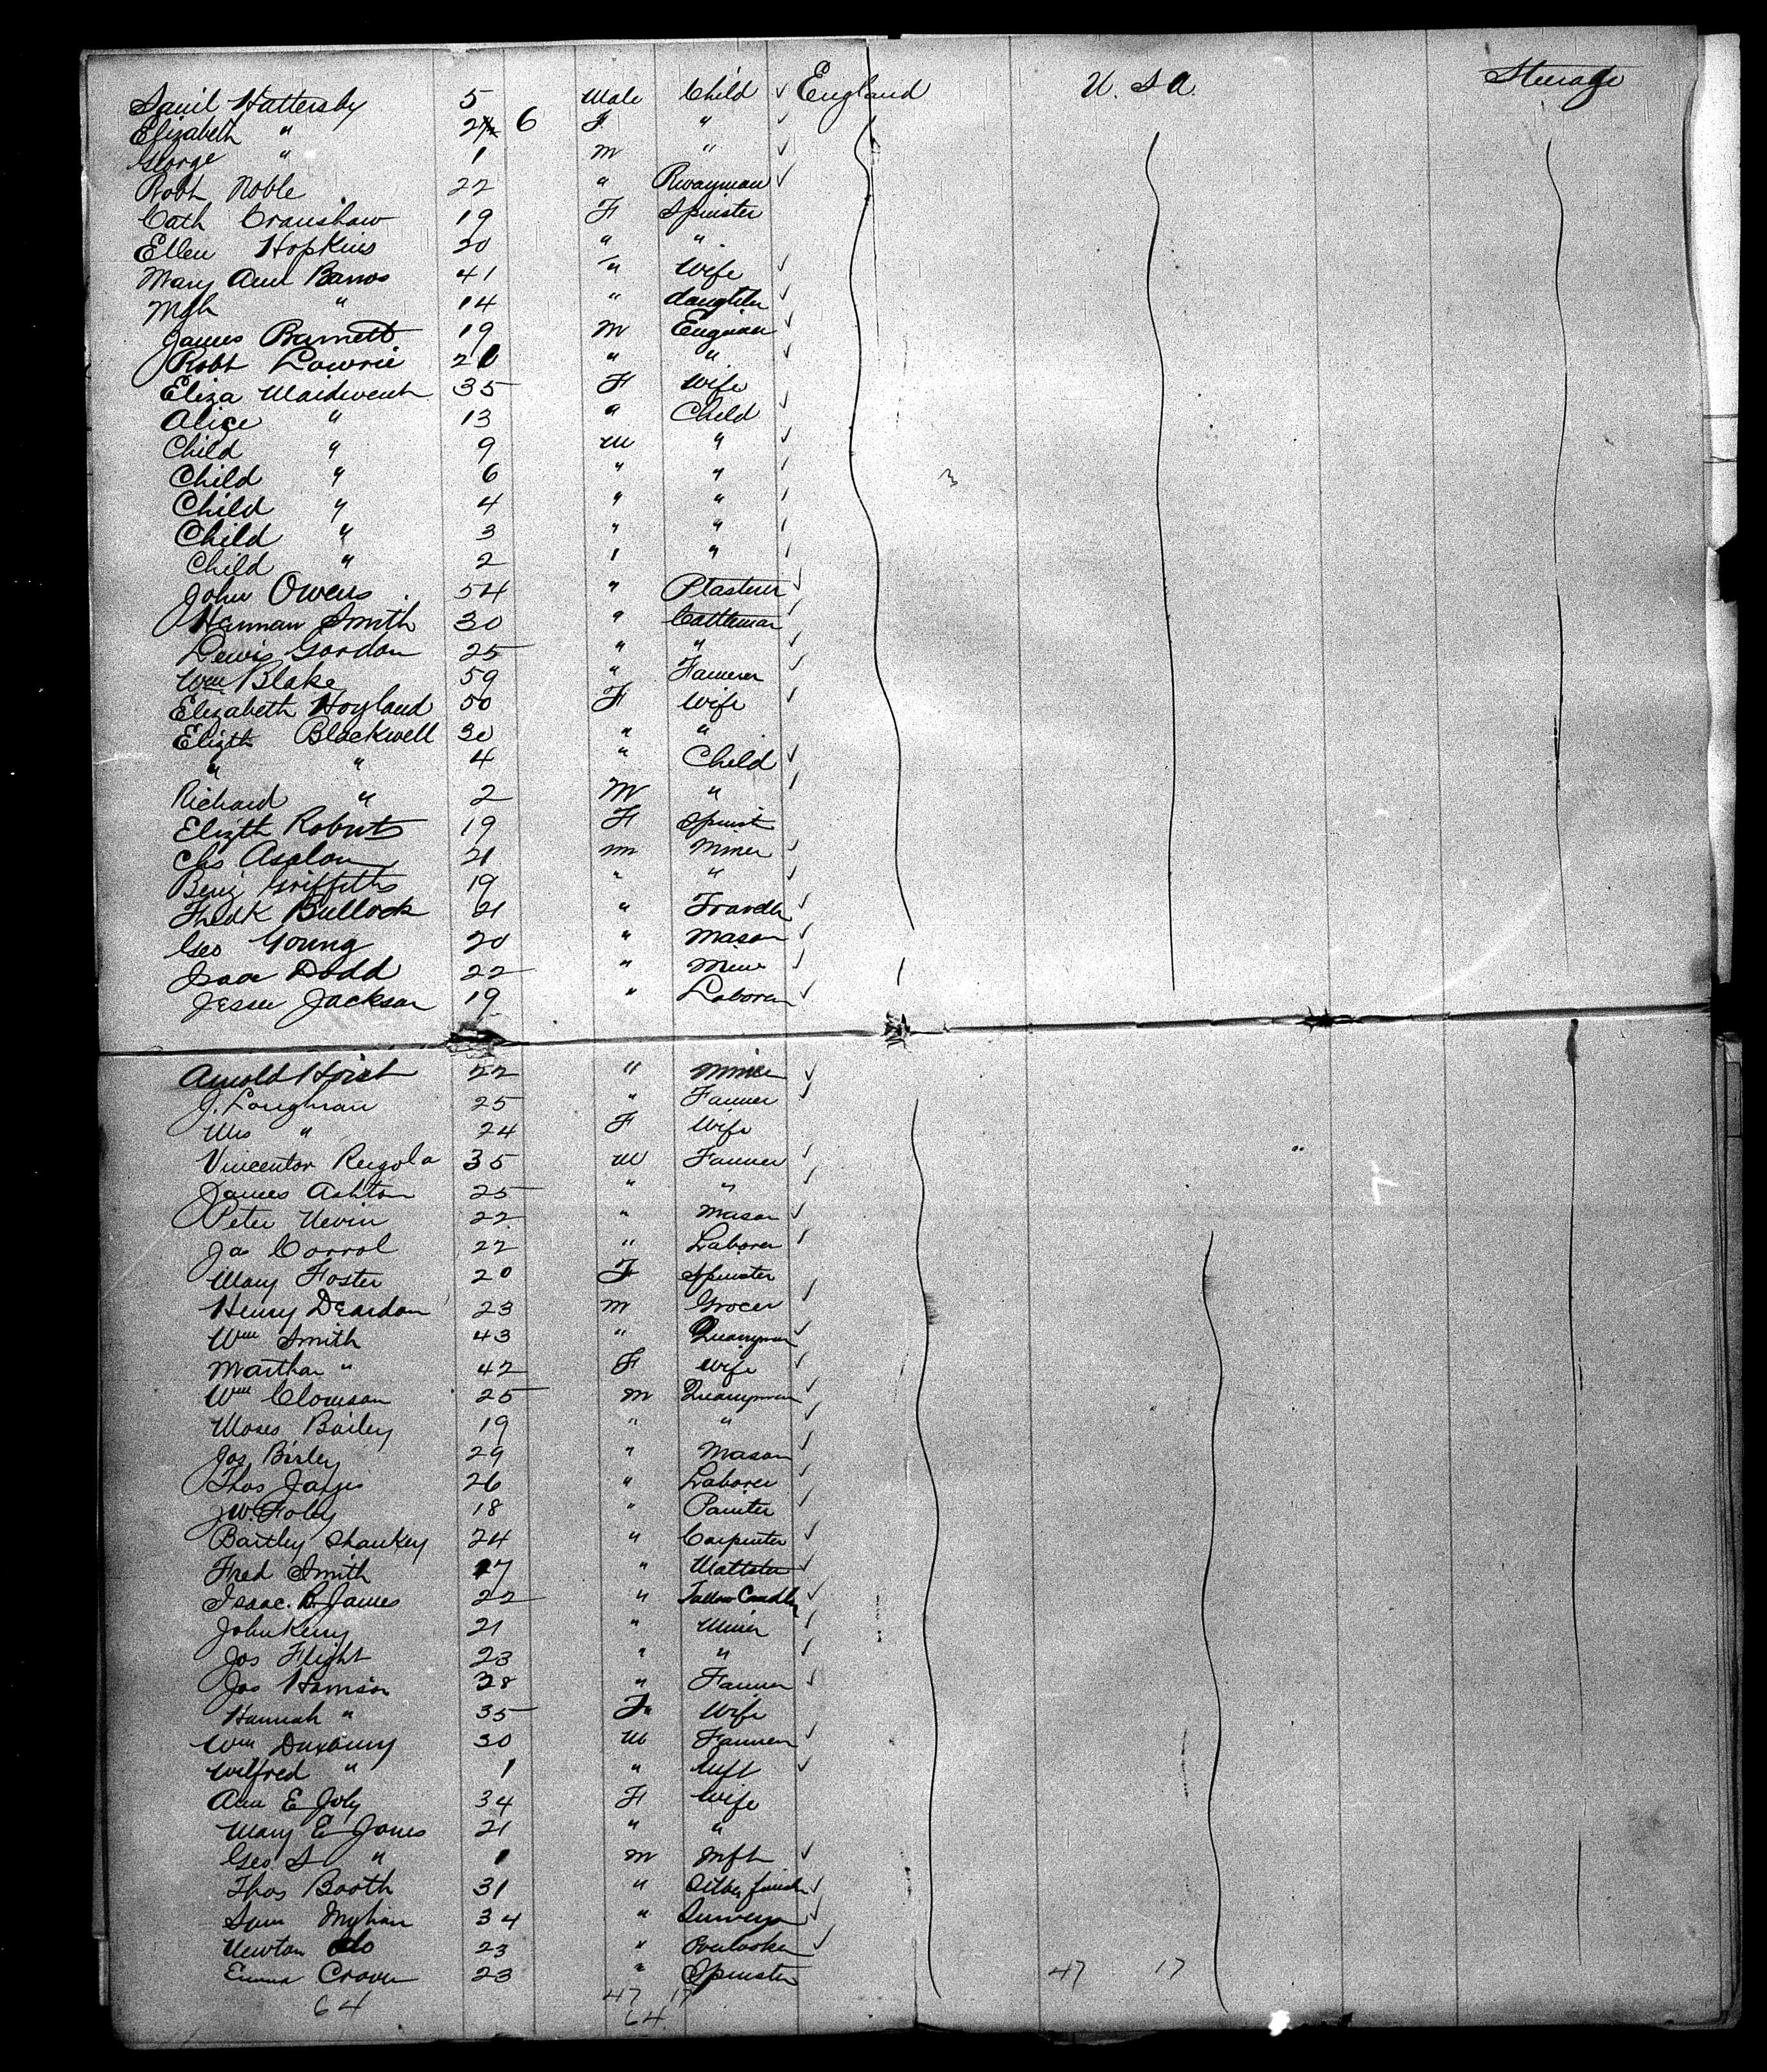 Saml Hattersby 5 Male Child ✓ England U. S A. Steerage
Elizabeth " 2 6 F " ✓
George " 1 M " ✓
Robt Noble 22 " Rwayman ✓
Cath Cranshaw 19 F Spinster
Ellen Hopkins 20 " "
Mary Ann Barros 41 " Wife ✓
Mgh " 14 " daughter ✓
James Barnett 19 M Engman ✓
Robt Lowrie 20 " " ✓
Eliza Maidment 35 F Wife ✓
Alice " 13 " Child ✓
Child " 9 M " ✓
Child " 6 " " ✓
Child " 4 " " ✓
Child " 3 " " ✓
Child " 2 " " ✓
John Owens 54 " Plasterer ✓
Herman Smith 30 " Cattleman ✓
Lewis Gordon 25 " " ✓
Wm Blake 59 " Farmer ✓
Elizabeth Hoyland 50 F Wife ✓
Elizth Blackwell 30 " "
" " 4 " Child ✓
Richard " 2 M " ✓
Elizth Roberts 19 F Spinst
Chs Asplon 21 M Miner ✓
Benj Griffiths 19 " " ✓
Fredk Bullock 21 " Travellr ✓
Geo Young 20 " Mason ✓
Isaac Dodd 22 " Miner ✓
Jesse Jackson 19 " Laborer ✓
Arnold Hoist 22 " Miner ✓
J. Longman 25 " Farmer ✓
Mrs " 24 F Wife
Vincentor Regola 35 M Farmer ✓
James Ashton 25 " " ✓
Peter Nevin 22 " Mason ✓
Jas Corrol 22 " Laborer ✓
Mary Foster 20 F Spinster
Henry Deardon 23 M Grocer ✓
Wm Smith 43 " Quarryman ✓
Martha " 42 F Wife ✓
Wm Clowson 25 M Quarryman ✓
Moses Bailey 19 " " ✓
Jos Birley 29 " Mason ✓
Thos 26 " Laborer ✓
J.W. Foley 18 " Painter ✓
Bartley Shankey 24 " Carpenter ✓
Fred Smith 27 " Maltster ✓
Isaac. R. James 22 " Tallow Candler ✓
John Kerry 21 " Miner ✓
Jos Flight 23 " " ✓
Jos Harrison 38 " Farmer ✓
Hannah " 35 F Wife
Wm Duxbury 30 M Farmer ✓
Wilfred " 1 " Inft ✓
Ann E Joly 34 F Wife
Mary E Jones 21 " "
Geo. S " 1 M Inft ✓
Thos Booth 31 " ✓
Sam 34 " Surveyor ✓
Newton 23 " Overlooker ✓
Emma Craven 23 " Spinster 47 17
64 47 17
64